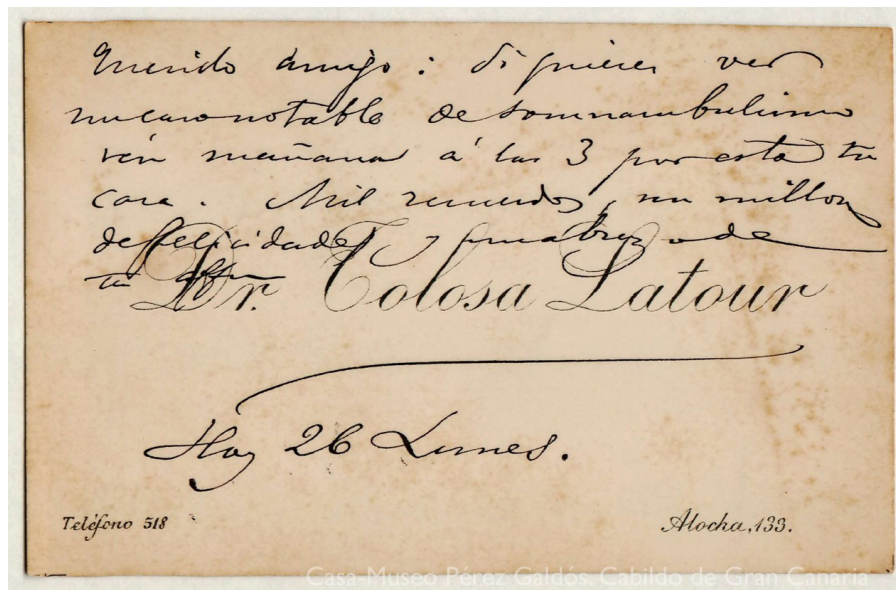 Querido amigo: Si quieres ver
un caso notable de somnambulismo
ven mañana á las 3 por esta tu
casa. Mil recuerdos, un millon
de felicidades y un abrazo de
tu
Dr. Tolosa Latour
Hoy 26 Lunes.
Teléfono 518
Atocha, 133.
Casa-Museo Pérez Galdós. Cabildo de Gran Canaria